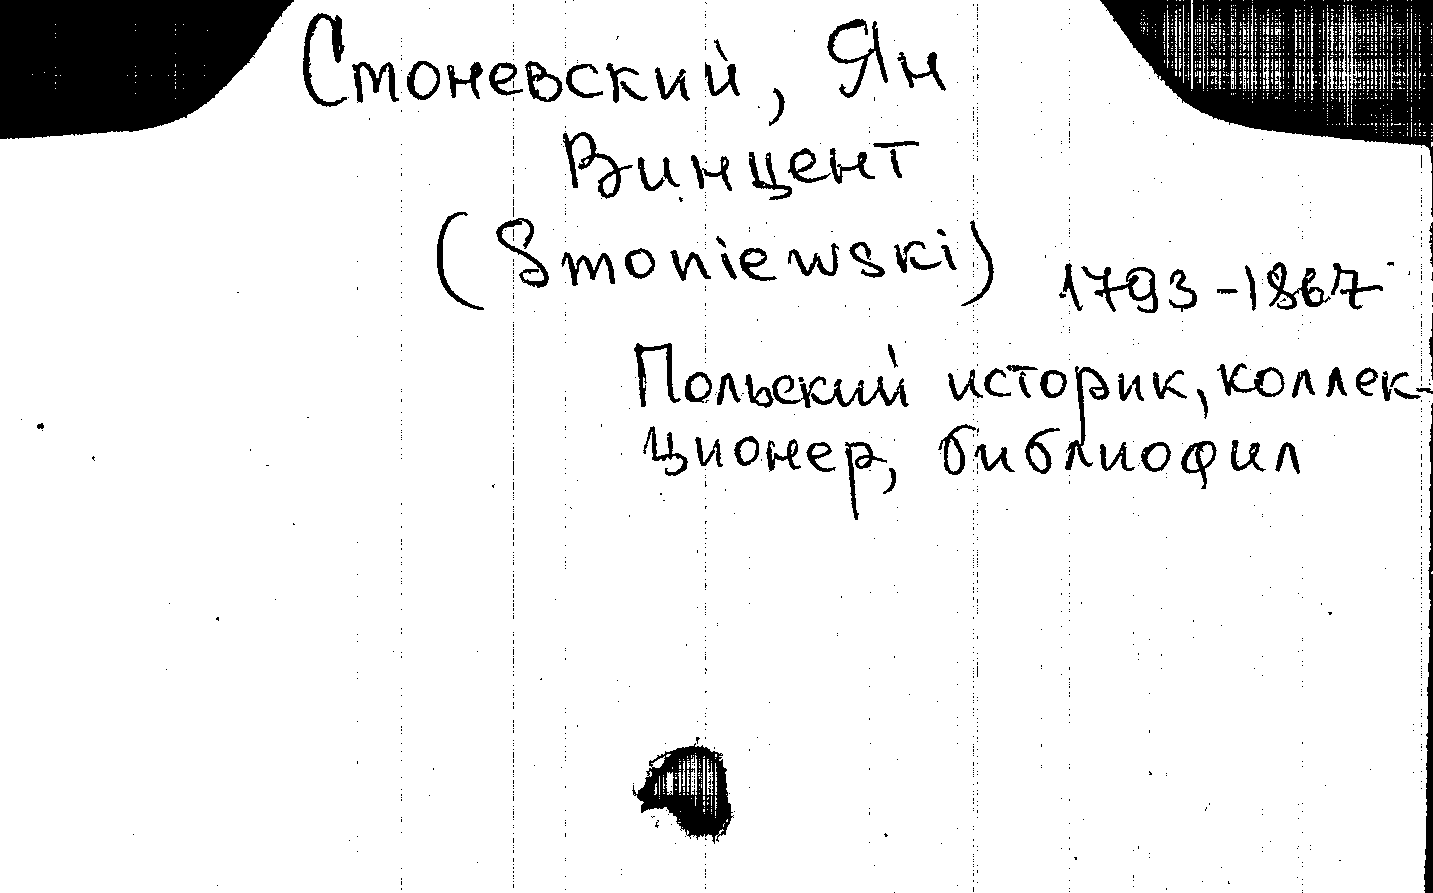 Стоневский, Ян
Винцент
(Stoniewski) 1793-1867
Польский историк, коллек-
ционер, библиофил